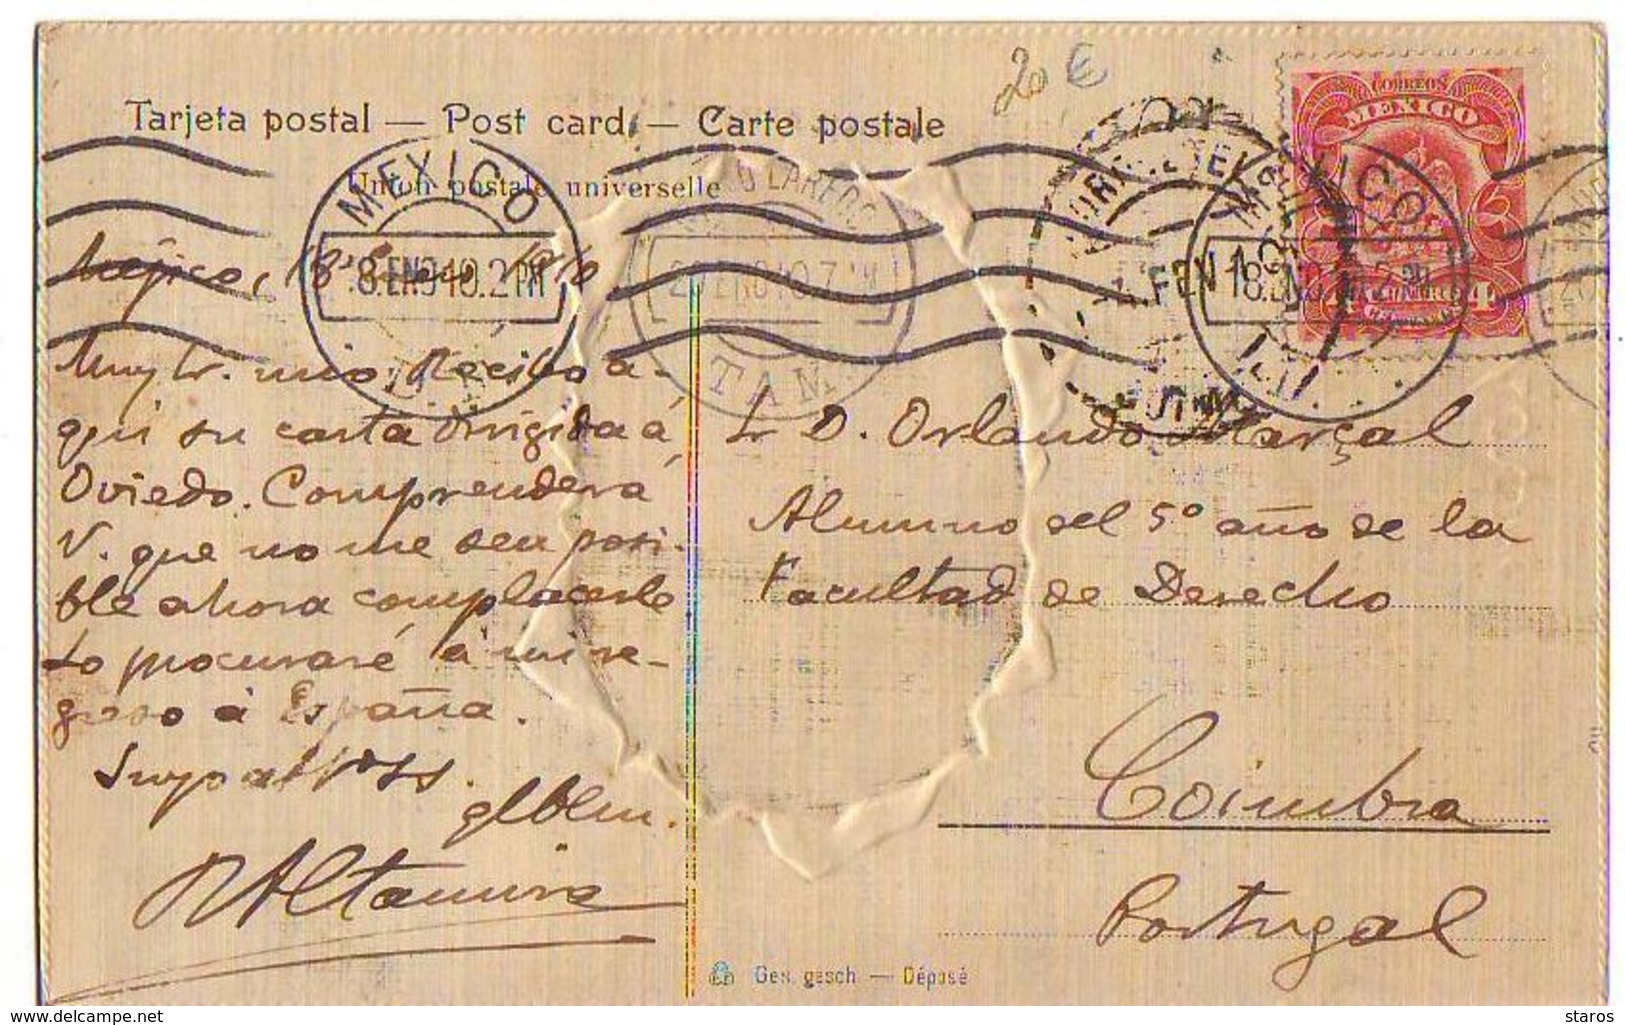 20 €
Tarjeta postal — Post card — Carte postale
Union postale universelle
CORREOS
MEXICO
MEXICO
18.ENO10.2PM
LAREDO
20ENO10.7
TAM
FEV
MEXICO
18.ENO10.2PM
4 4
Méjico, 18 Enero 1910
Muy Sr. mio: Recibo a-
quí su carta dirigida á
Oviedo. Comprenderá
V. que no me sea posi-
ble ahora complacerle
Lo procuraré á mi re-
greso á España.
Suyo
R Altamira
Sr D. Orlando Marçal
Alumno del 5º año de la
Facultad de Derecho
Coimbra
Portugal
Ges. gesch — Déposé
www.delcampe.net
staros